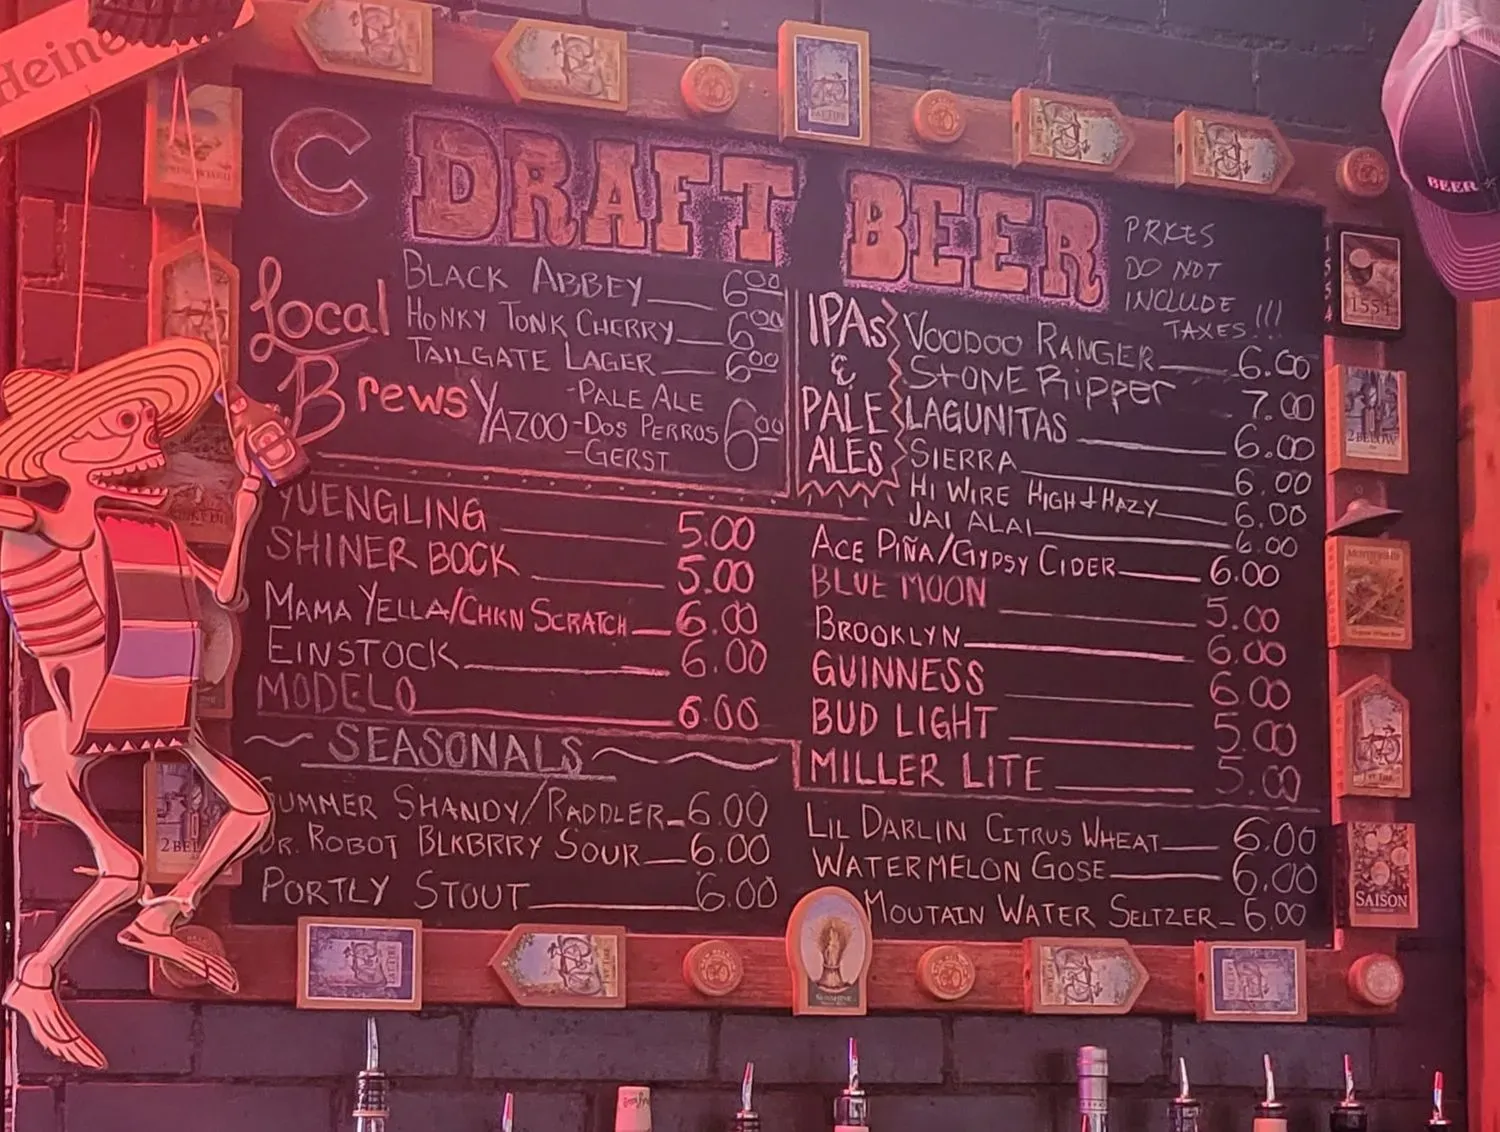 Heine
C DRAFT BEER
PRICES
DO NOT
INCLUDE
TAXES !!!
Local
Brews
BLACK ABBEY 6.00
HONKY TONK CHERRY 6.00
TAILGATE LAGER 6.00
YAZOO -PALE ALE
-DOS PERROS 6.00
-GERST
IPAs
&
PALE
ALES
VOODOO RANGER 6.00
STONE RIPPER 7.00
LAGUNITAS 6.00
SIERRA 6.00
HI WIRE HIGH + HAZY 6.00
JAI ALAI 6.00
YUENGLING 5.00
SHINER BOCK 5.00
MAMA YELLA/CHKN SCRATCH 6.00
EINSTOCK 6.00
MODELO 6.00
ACE PIÑA/GYPSY CIDER 6.00
BLUE MOON 5.00
BROOKLYN 6.00
GUINNESS 6.00
BUD LIGHT 5.00
MILLER LITE 5.00
SEASONALS
SUMMER SHANDY/RADDLER 6.00
DR. ROBOT BLKBRRY SOUR 6.00
PORTLY STOUT 6.00
LIL DARLIN CITRUS WHEAT 6.00
WATERMELON GOSE 6.00
MOUTAIN WATER SELTZER 6.00
BEER
1554
2 BELOW
SAISON
2 BEL
SUNSHINE